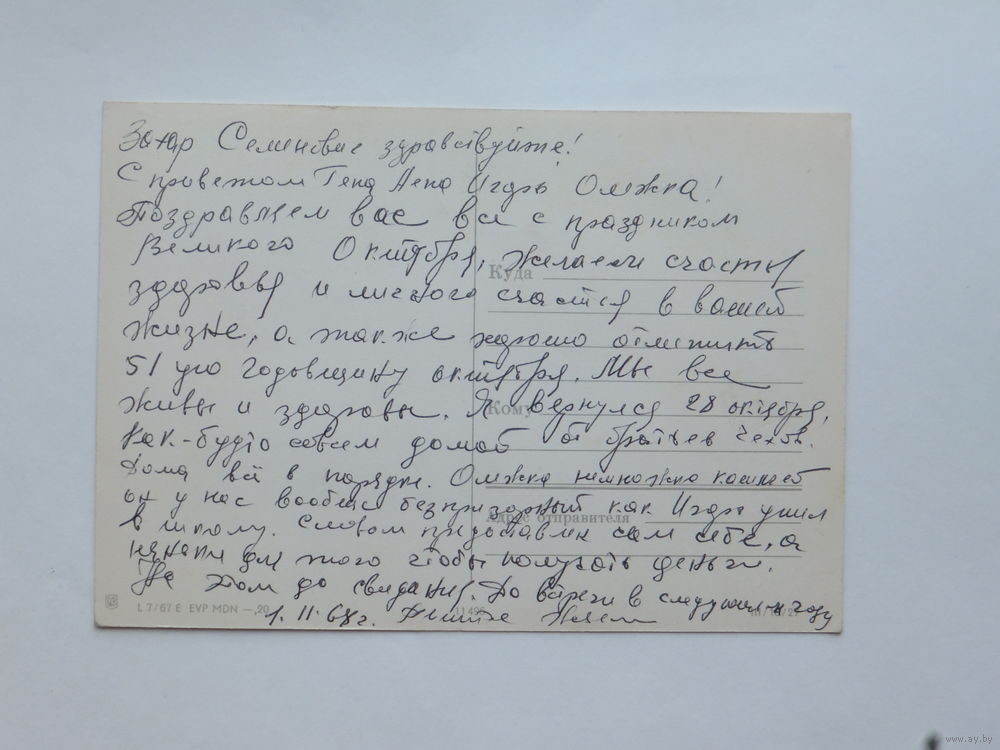 Захар Семенович здравствуйте!
С приветом Гена Игорь Олежка!
Поздравляем вас все с праздником
Великого Октября, желаем счастья
Куда
здоровья и личного счастья в вашей
жизне, а также хорошо отметить
51 ую годовщину октября. Мы все
живы и здоровы. Я вернулся 28 октября,
Кому
как-будто совсем домой от братьев чехов.
Дома всё в порядке. Олежка немножко кашляет
он у нас вообще безпризорный как Игорь ушел
Адрес отправителя
в школу. Словом предоставлен сам себе, а
няньки для того чтобы получать деньги.
На этом до свидания. До встречи в следующем году
L 7/67 E EVP MDN —,20
1.11.68г. Пишите Ждем
www.ay.by